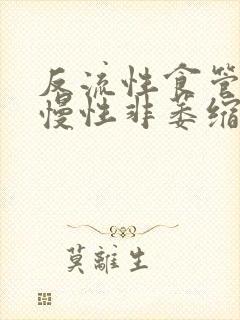 反流性食管
慢性非萎缩
莫離生